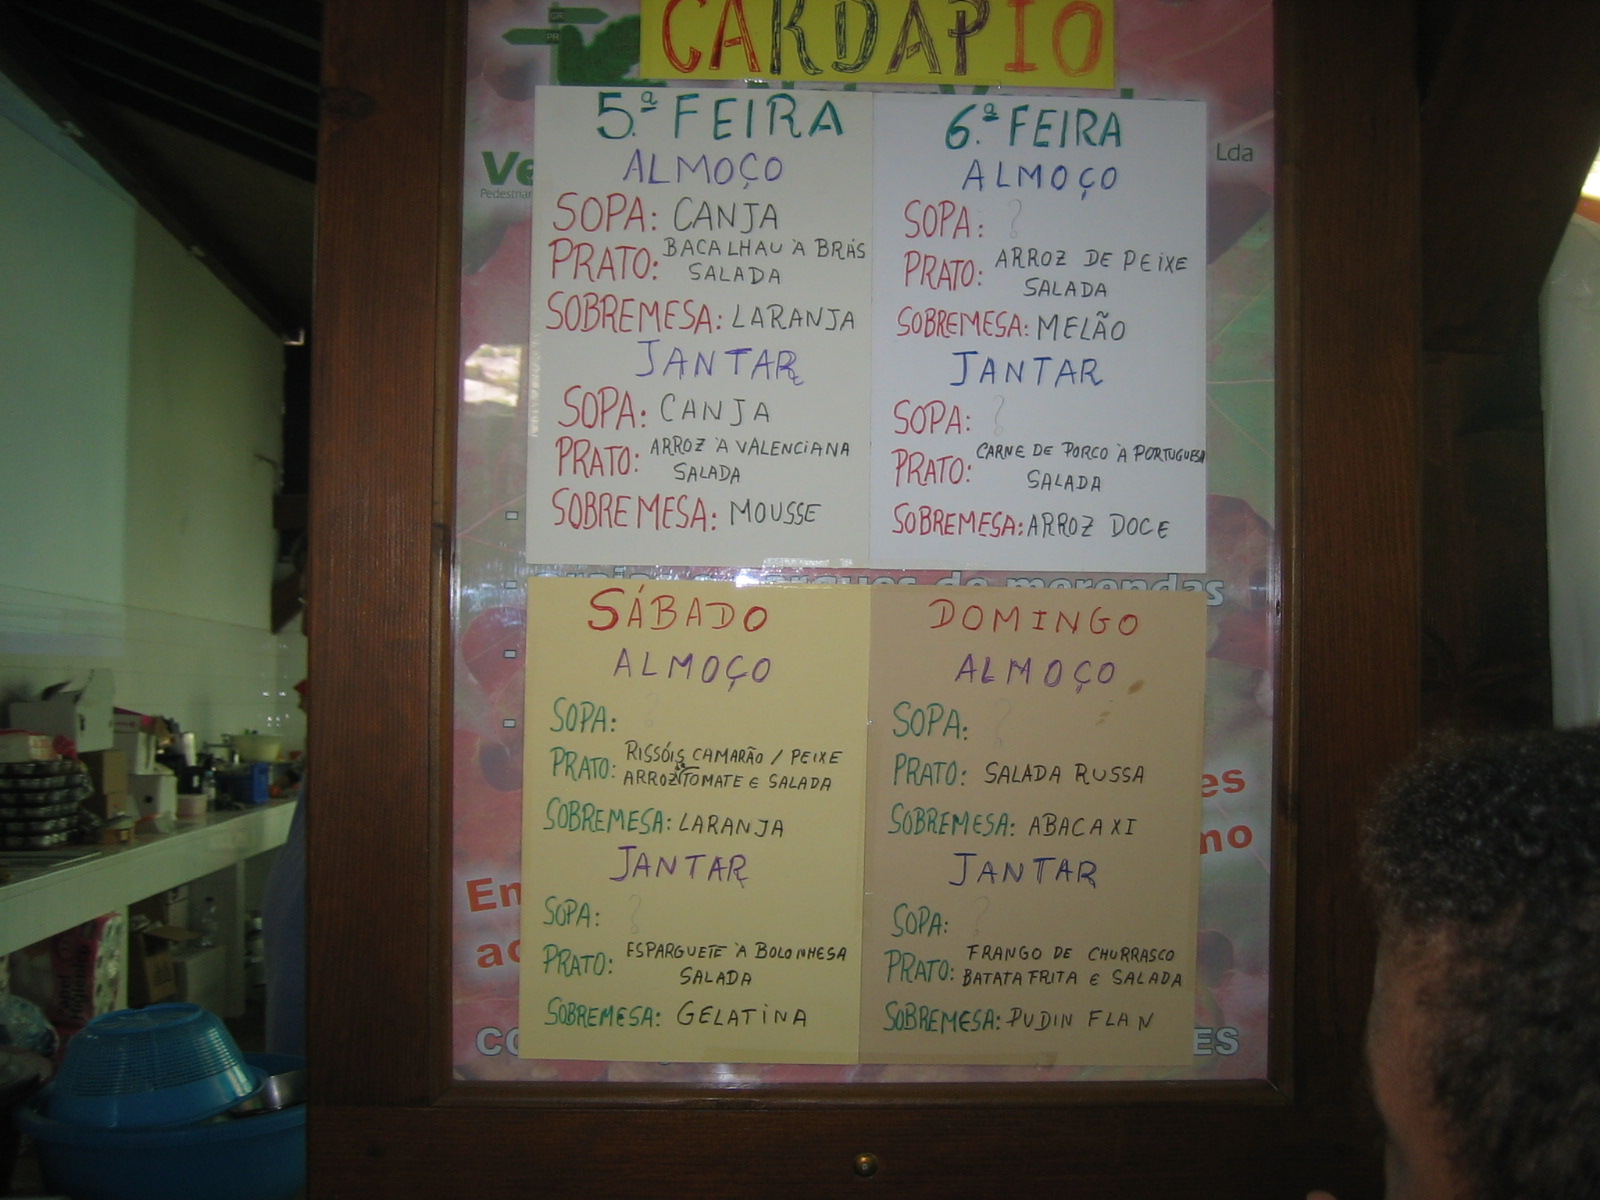 CARDÁPIO
5.ª FEIRA
ALMOÇO
SOPA: CANJA
PRATO: BACALHAU À BRÁS
SALADA
SOBREMESA: LARANJA
JANTAR
SOPA: CANJA
PRATO: ARROZ À VALENCIANA
SALADA
SOBREMESA: MOUSSE
6.ª FEIRA
ALMOÇO
SOPA: ?
PRATO: ARROZ DE PEIXE
SALADA
SOBREMESA: MELÃO
JANTAR
SOPA: ?
PRATO: CARNE DE PORCO À PORTUGUESA
SALADA
SOBREMESA: ARROZ DOCE
SÁBADO
ALMOÇO
SOPA: ?
PRATO: RISSÓIS CAMARÃO / PEIXE
ARROZ DE TOMATE E SALADA
SOBREMESA: LARANJA
JANTAR
SOPA: ?
PRATO: ESPARGUETE À BOLONHESA
SALADA
SOBREMESA: GELATINA
DOMINGO
ALMOÇO
SOPA: ?
PRATO: SALADA RUSSA
SOBREMESA: ABACAXI
JANTAR
SOPA: ?
PRATO: FRANGO DE CHURRASCO
BATATA FRITA E SALADA
SOBREMESA: PUDIN FLAN
PR
Lda
de merendas